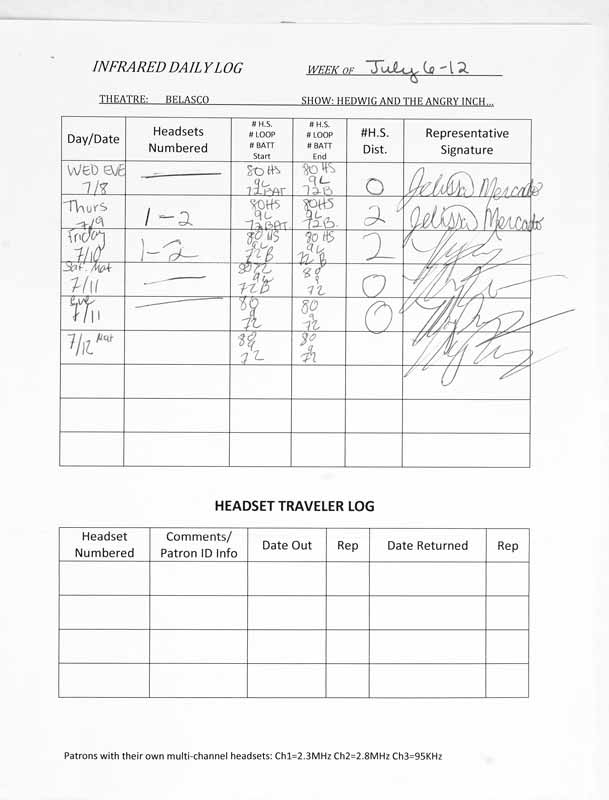 INFRARED DAILY LOG WEEK OF July 6-12
THEATRE: BELASCO SHOW: HEDWIG AND THE ANGRY INCH...
Day/Date Headsets Numbered # H.S. # LOOP # BATT Start # H.S. # LOOP # BATT End #H.S. Dist. Representative Signature
WED EVE 7/8 80 HS 9L 72 BAT 80 HS 9L 72 B 0 Jelissa Mercado
Thurs 7/9 1-2 80HS 9L 72 BAT 80HS 9L 72 B. 2 Jelissa Mercado
Friday 7/10 1-2 80 HS 9L 72 B 80 HS 9L 72 B 2
Sat. Mat 7/11 9L 72 B 72 0
Eve 7/11 80 9 72 80 9 72 0
7/12 Mat 80 9 72 80 9 72
HEADSET TRAVELER LOG
Headset Numbered Comments/ Patron ID Info Date Out Rep Date Returned Rep
Patrons with their own multi-channel headsets: Ch1=2.3MHz Ch2=2.8MHz Ch3=95KHz